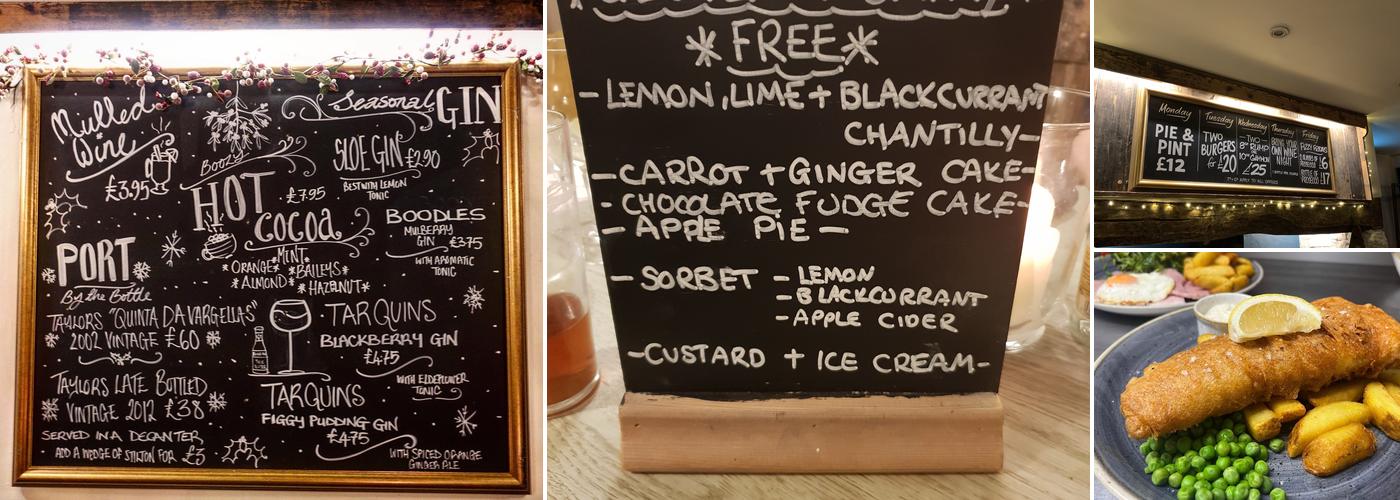 Mulled
Wine
£3.95
Seasonal GIN
SLOE GIN £2.90
BEST WITH LEMON
TONIC
Boozy
HOT £7.95
Cocoa
MINT
*ORANGE* *BAILEYS*
*ALMOND* *HAZELNUT*
BOODLES
MULBERRY
GIN £3.75
WITH AROMATIC
TONIC
PORT
By the Bottle
TAYLORS "QUINTA DA VARGELLAS"
2002 VINTAGE £60
TAYLORS LATE BOTTLED
VINTAGE 2012 £38
SERVED IN A DECANTER
ADD A WEDGE OF STILTON FOR £3
TARQUINS
BLACKBERRY GIN
£4.75
WITH ELDERFLOWER
TONIC
TARQUINS
FIGGY PUDDING GIN
£4.75
WITH SPICED ORANGE
GINGER ALE
*FREE*
- LEMON, LIME + BLACKCURRANT
CHANTILLY-
- CARROT + GINGER CAKE-
- CHOCOLATE FUDGE CAKE-
- APPLE PIE -
- SORBET - LEMON
- BLACKCURRANT
- APPLE CIDER
-CUSTARD + ICE CREAM-
Monday
PIE &
PINT
£12
Tuesday
TWO
BURGERS
for £20
Wednesday
TWO
8oz RUMP
10oz GAMMON
£25
Thursday
BRING YOUR
OWN WINE
NIGHT
Friday
FIZZY
£6
BOTTLE OF
PROSECCO £17